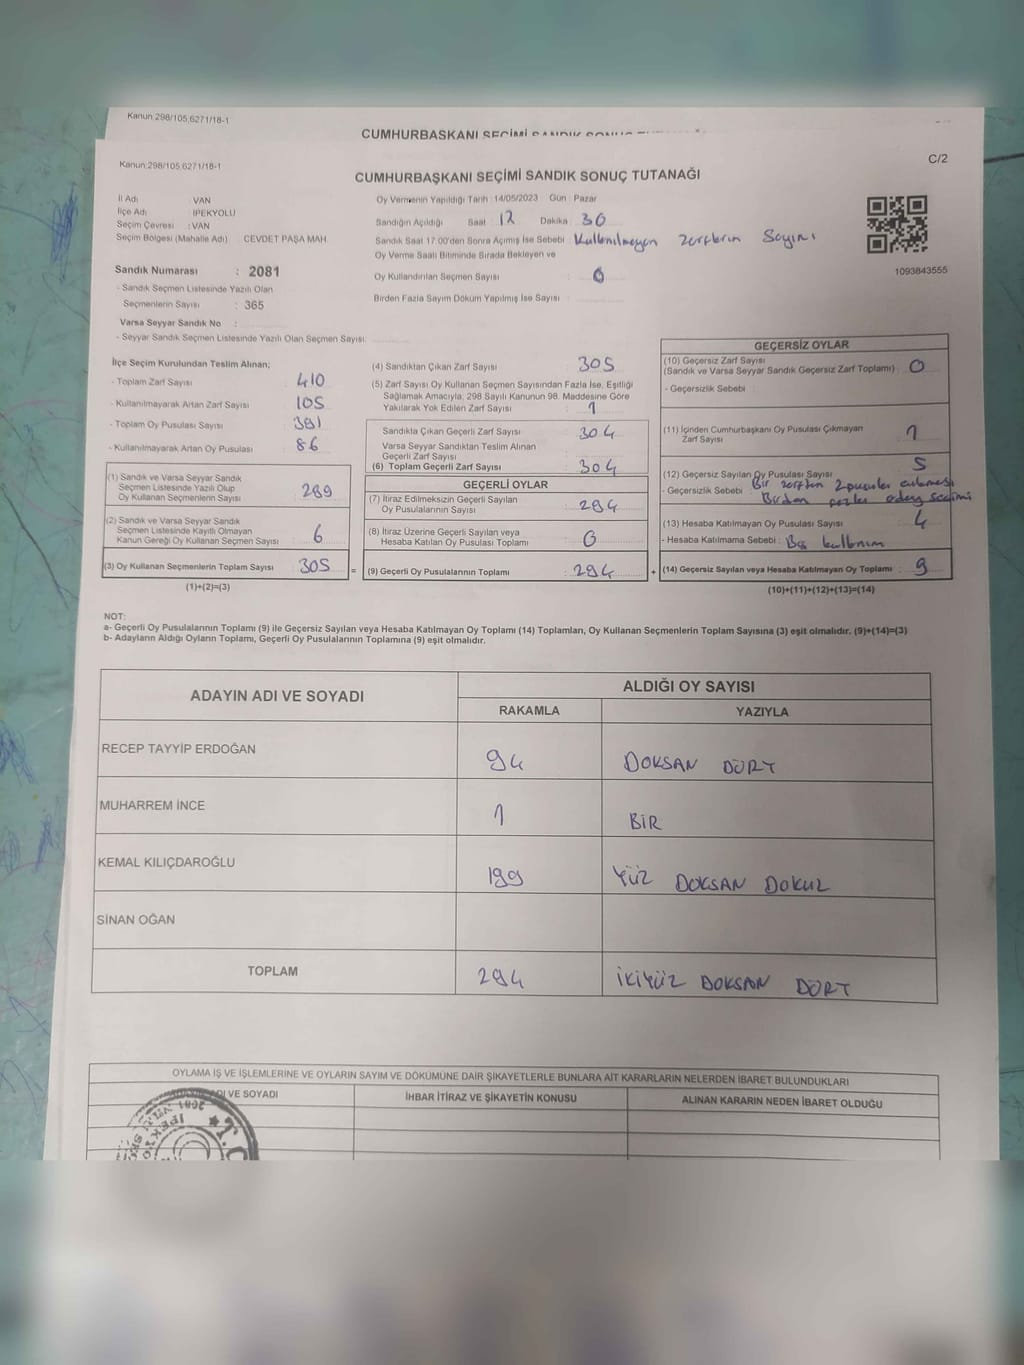 Kanun:298/105,6271/18-1
CUMHURBAŞKANI SEÇİMİ SANDIK SONUÇ
Kanun:298/105,6271/18-1
C/2
CUMHURBAŞKANI SEÇİMİ SANDIK SONUÇ TUTANAĞI
İl Adı VAN
İlçe Adı İPEKYOLU
Seçim Çevresi : VAN
Seçim Bölgesi (Mahalle Adı) CEVDET PAŞA MAH.
Oy Vermenin Yapıldığı Tarih :14/05/2023 Gün : Pazar
Sandığın Açıldığı Saat 17 Dakika 30
Sandık Saat 17:00'den Sonra Açılmış İse Sebebi : Kullanılmayan zarfların Sayımı
Oy Verme Saati Bitiminde Sırada Bekleyen ve
Oy Kullandırılan Seçmen Sayısı : 0
Birden Fazla Sayım Döküm Yapılmış İse Sayısı :
1093843555
Sandık Numarası : 2081
- Sandık Seçmen Listesinde Yazılı Olan
Seçmenlerin Sayısı : 365
Varsa Seyyar Sandık No :
- Seyyar Sandık Seçmen Listesinde Yazılı Olan Seçmen Sayısı:
İlçe Seçim Kurulundan Teslim Alınan;
- Toplam Zarf Sayısı : 410
- Kullanılmayarak Artan Zarf Sayısı : 105
- Toplam Oy Pusulası Sayısı : 391
- Kullanılmayarak Artan Oy Pusulası : 86
(1) Sandık ve Varsa Seyyar Sandık
Seçmen Listesinde Yazılı Olup
Oy Kullanan Seçmenlerin Sayısı : 299
(2) Sandık ve Varsa Seyyar Sandık
Seçmen Listesinde Kayıtlı Olmayan
Kanun Gereği Oy Kullanan Seçmen Sayısı : 6
(3) Oy Kullanan Seçmenlerin Toplam Sayısı : 305
(1)+(2)=(3)
(4) Sandıktan Çıkan Zarf Sayısı : 305
(5) Zarf Sayısı Oy Kullanan Seçmen Sayısından Fazla İse, Eşitliği
Sağlamak Amacıyla; 298 Sayılı Kanunun 98. Maddesine Göre
Yakılarak Yok Edilen Zarf Sayısı : 1
Sandıkta Çıkan Geçerli Zarf Sayısı : 304
Varsa Seyyar Sandıktan Teslim Alınan
Geçerli Zarf Sayısı :
(6) Toplam Geçerli Zarf Sayısı : 304
GEÇERLİ OYLAR
(7) İtiraz Edilmeksizin Geçerli Sayılan
Oy Pusulalarının Sayısı : 294
(8) İtiraz Üzerine Geçerli Sayılan veya
Hesaba Katılan Oy Pusulası Toplamı : 0
= (9) Geçerli Oy Pusulalarının Toplamı : 294 +
GEÇERSİZ OYLAR
(10) Geçersiz Zarf Sayısı
(Sandık ve Varsa Seyyar Sandık Geçersiz Zarf Toplamı) : 0
- Geçersizlik Sebebi :
(11) İçinden Cumhurbaşkanı Oy Pusulası Çıkmayan
Zarf Sayısı : 1
(12) Geçersiz Sayılan Oy Pusulası Sayısı : 5
- Geçersizlik Sebebi : Bir zarftan 2 pusula
Birden fazla aday seçimi
(13) Hesaba Katılmayan Oy Pusulası Sayısı : 4
- Hesaba Katılmama Sebebi : Boş kullanım
(14) Geçersiz Sayılan veya Hesaba Katılmayan Oy Toplamı : 9
(10)+(11)+(12)+(13)=(14)
NOT:
a- Geçerli Oy Pusulalarının Toplamı (9) ile Geçersiz Sayılan veya Hesaba Katılmayan Oy Toplamı (14) Toplamları, Oy Kullanan Seçmenlerin Toplam Sayısına (3) eşit olmalıdır. (9)+(14)=(3)
b- Adayların Aldığı Oyların Toplamı, Geçerli Oy Pusulalarının Toplamına (9) eşit olmalıdır.
ADAYIN ADI VE SOYADI
ALDIĞI OY SAYISI
RAKAMLA YAZIYLA
RECEP TAYYİP ERDOĞAN 94 DOKSAN DÖRT
MUHARREM İNCE 1 BİR
KEMAL KILIÇDAROĞLU 199 YÜZ DOKSAN DOKUZ
SİNAN OĞAN
TOPLAM 294 İKİYÜZ DOKSAN DÖRT
OYLAMA İŞ VE İŞLEMLERİNE VE OYLARIN SAYIM VE DÖKÜMÜNE DAİR ŞİKAYETLERLE BUNLARA AİT KARARLARIN NELERDEN İBARET BULUNDUKLARI
VE SOYADI İHBAR İTİRAZ VE ŞİKAYETİN KONUSU ALINAN KARARIN NEDEN İBARET OLDUĞU
T.C.